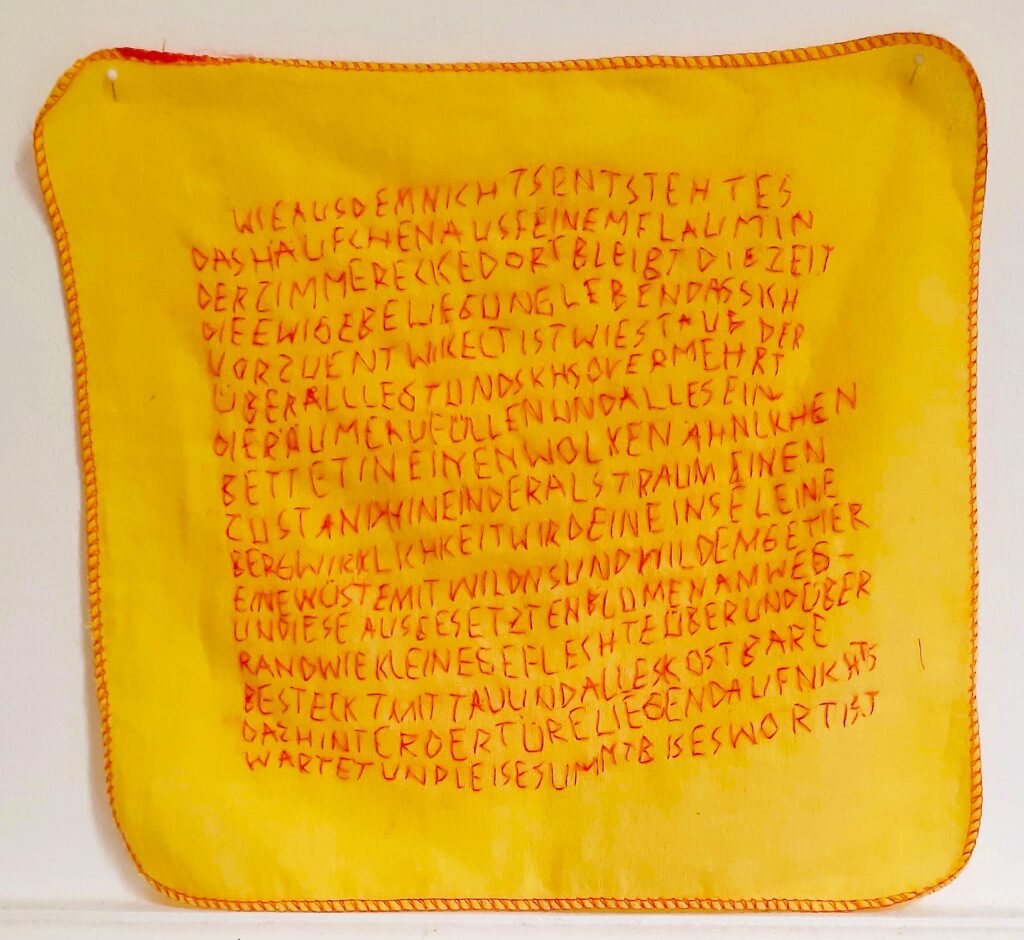 WIEAUSDEMNICHTSENTSTEHTES
DASHÄUFCHENAUSFEINEMFLAUMIN
DERZIMMERECKEDORTBLEIBTDIEZEIT
DIEEWIGEBELIEGUNGLEBENDASSICH
VORZUENTWIKELTISTWIESTAUBDER
ÜBERALLLEGTUNDSICHSOVERMEHRT
DIERÄUMEAUFÜLLENUNDALLESEIN
BETTETINEINENWOLKENÄHNLICHEN
ZUSTANDHINEINDERALSTRAUMEINEN
BERGWIRKLICHKEITWIRDEINEINSELEINE
EINEWÜSTEMITWILDNSUNDWILDEMGETIER
UNDIESEAUSGESETZTENBLUMENAMWEG-
RANDWIEKLEINEGEFLECHTEÜBERUNDÜBER
BESTECKTMITTAUUNDALLESKOSTBARE
DAZHINTERDERTÜRELIEGENDAUFNICHTS
WARTETUNDLEISESUMMTBISESWORTIST